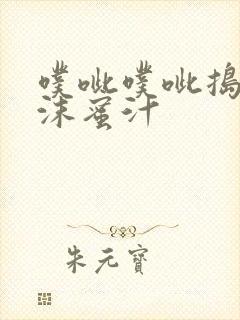 噗呲噗呲搗
沫蜜汁
朱元寶